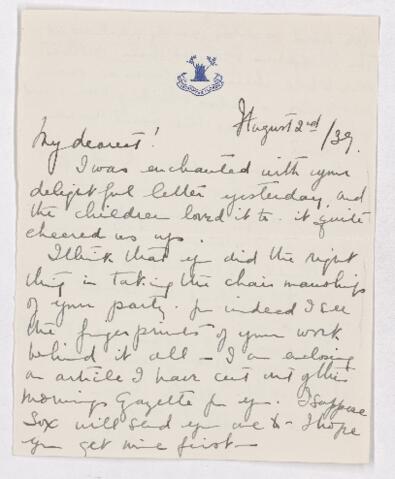 August 2nd/39.
My dearest!
I was enchanted with your
delightful letter yesterday, and
the children loved it to. it quite
cheered us up.
I think that you did the right
thing in taking the chairmanship
of your party. for indeed I see
the fingerprints of your work
behind it all – I am enclosing
an article I have cut out of this
mornings Gazette for you. I suppose
Sox will send you one to – I hope
you get mine first –